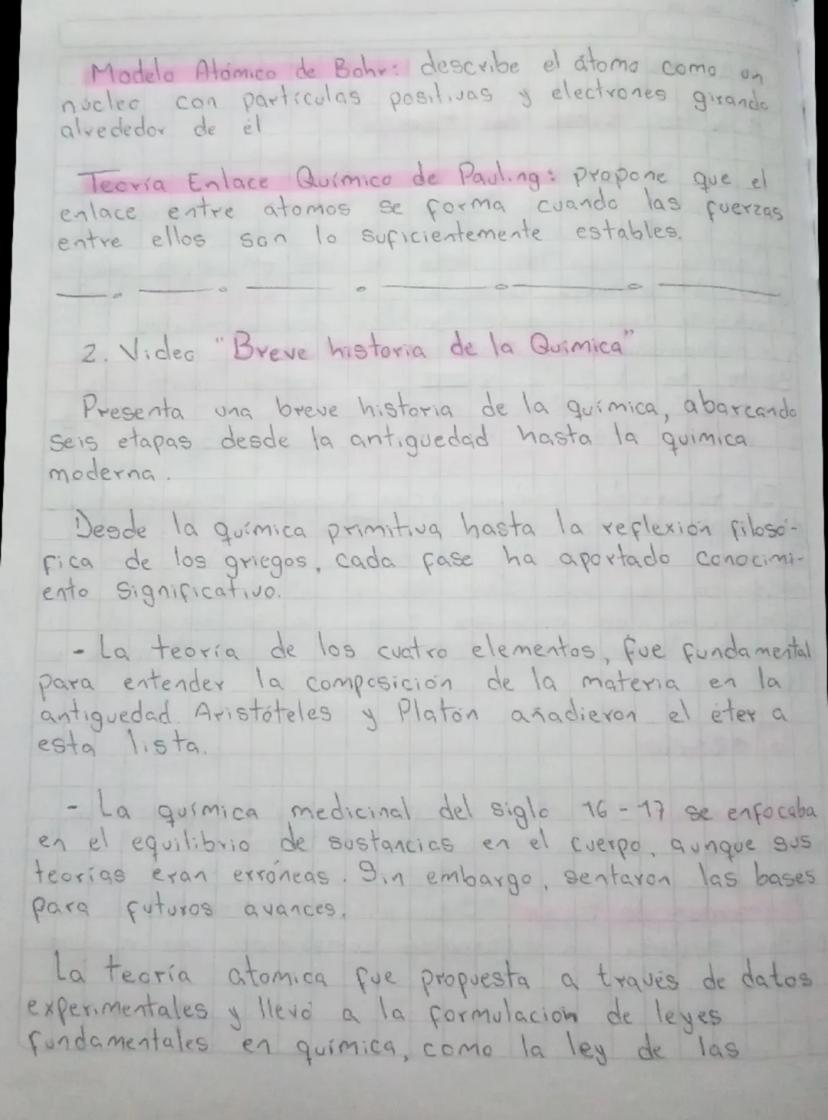 Modelo Atómico de Bohr: describe el átomo como un
núcleo con partículas positivas y electrones girando
alrededor de él
Teoría Enlace Químico de Pauling: propone que el
enlace entre atomos se forma cuando las fuerzas
entre ellos son lo suficientemente estables.
2. Video "Breve historia de la Química"
Presenta una breve historia de la química, abarcando
seis etapas desde la antiguedad hasta la química
moderna.
Desde la química primitiva hasta la reflexión filosó-
fica de los griegos, cada fase ha aportado conocimi-
ento significativo.
- La teoría de los cuatro elementos, fue fundamental
para entender la composición de la materia en la
antiguedad. Aristóteles y Platón añadieron el éter a
esta lista.
- La química medicinal del siglo 16-17 se enfocaba
en el equilibrio de sustancias en el cuerpo, aunque sus
teorías eran erróneas. Sin embargo, sentaron las bases
para futuros avances.
La teoría atomica fue propuesta a través de datos
experimentales y llevó a la formulación de leyes
fundamentales en química, como la ley de las